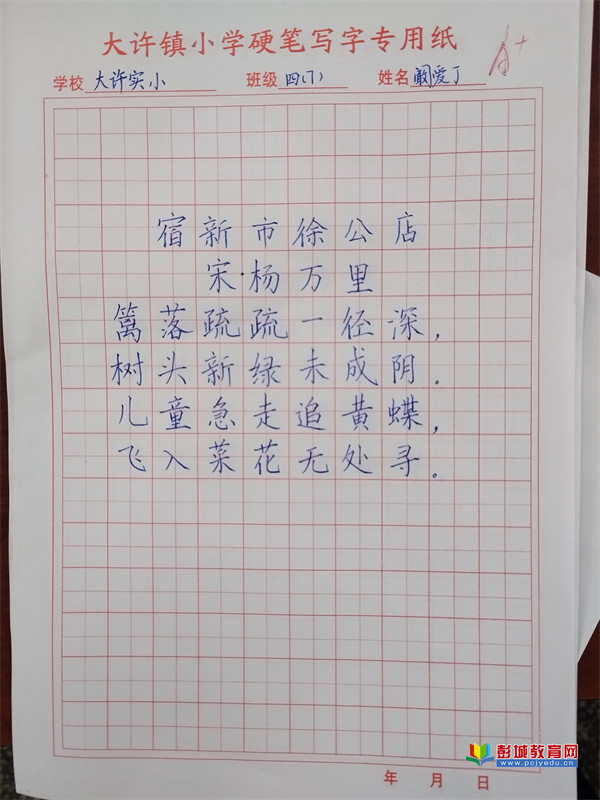 大许镇小学硬笔写字专用纸
学校 大许实小 班级 四(7) 姓名 阚爱丁
宿新市徐公店
宋·杨万里
篱落疏疏一径深，
树头新绿未成阴。
儿童急走追黄蝶，
飞入菜花无处寻。
年 月 日
彭城教育网
www.pcjyedu.cn